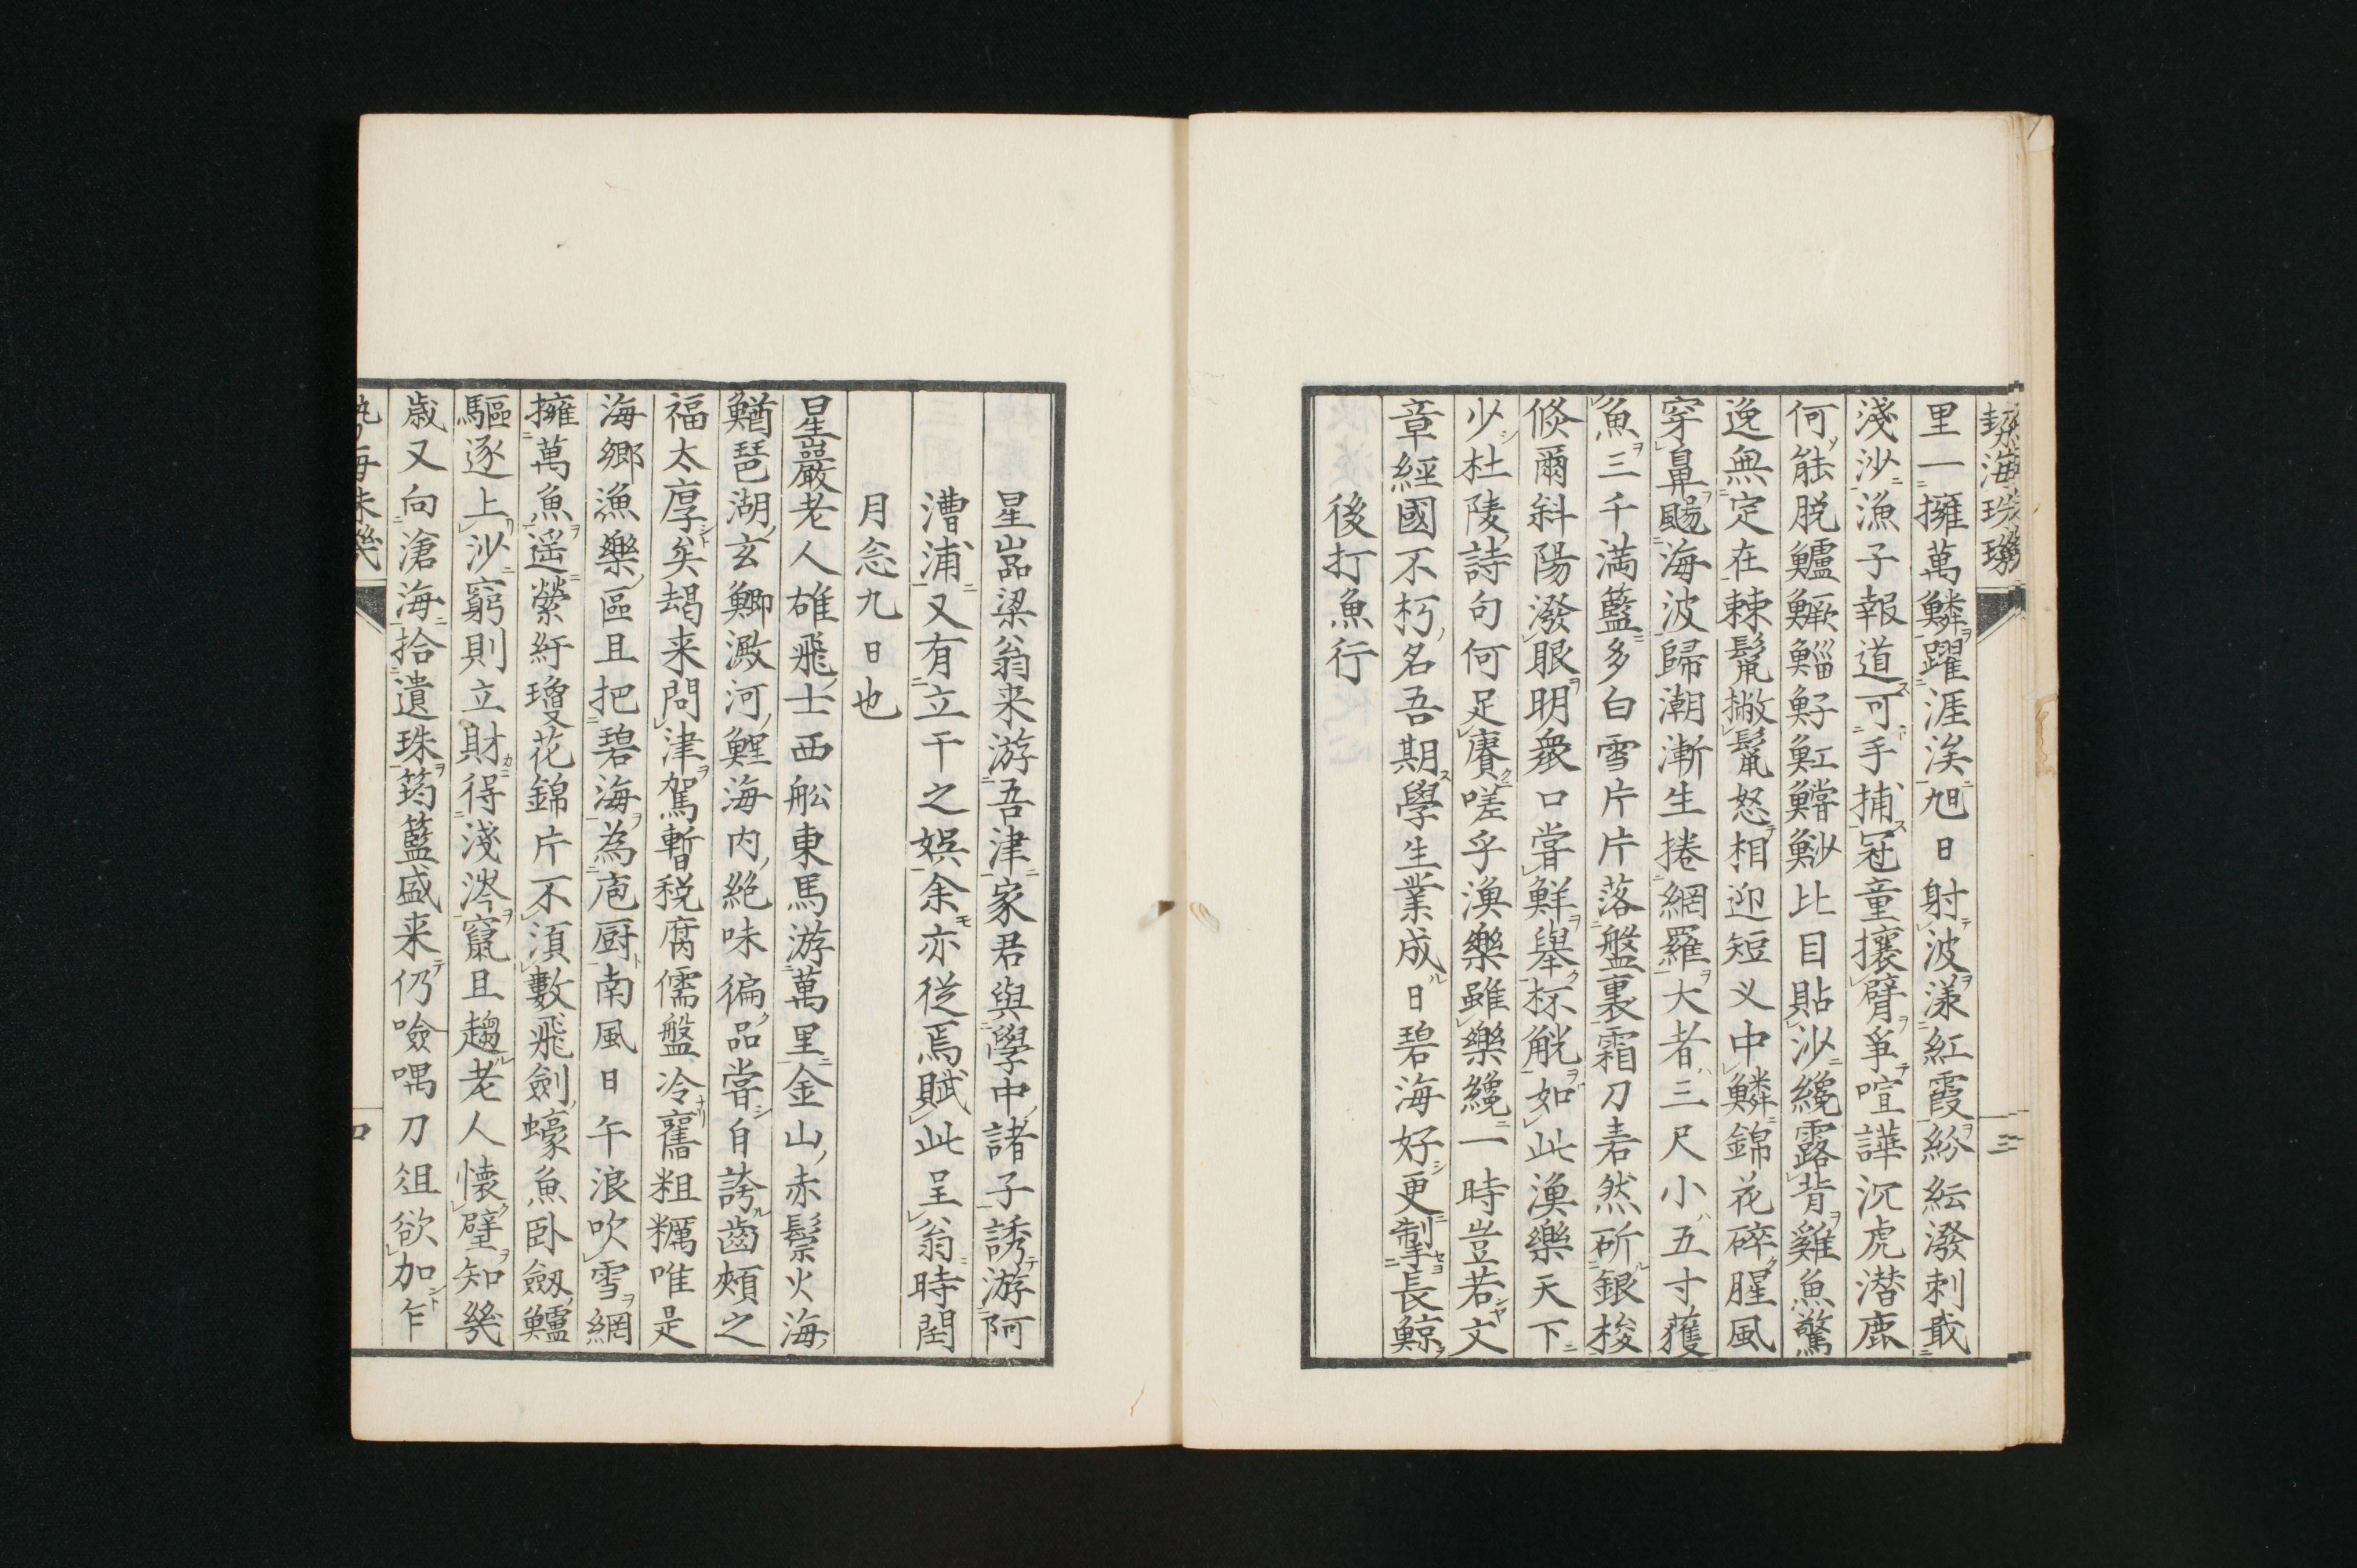 里一擁萬鱗躍涯涘旭日射波漾紅霞紛紜潑刺戢
淺沙漁子報道可手捕冠童攘臂爭喧譁沉虎潜鹿
何能脱鱸鱖鯔魣魟鱨魦比目貼沙纔露背雞魚驚
逸無定在棘鬣撇鬣怒相迎短义中鱗錦花碎腥風
穿鼻颺海波歸潮漸生捲網羅大者三尺小五寸獲
魚三千満籃多白雪片片落盤裏霜刀砉然斫銀梭
倐爾斜陽潑眼明衆口嘗鮮舉杯觥如此漁樂天下
少杜陵詩句何足賡嗟乎漁樂雖樂纔一時豈若文
章經國不朽名吾期學生業成日碧海好更掣長鯨
後打魚行
星喦梁翁来游吾津家君與學中諸子誘游阿
漕浦又有立干之娯余亦從焉賦此呈翁時閏
月念九日也
星巖老人雄飛士西舩東馬游萬里金山赤鬃火海
鰌琶湖玄鯽澱河鯉海内絶味徧品嘗自誇齒頰之
福太厚矣朅来問津駕暫税腐儒盤冷舊粗糲唯是
海郷漁樂區且把碧海為庖厨南風日午浪吹雪網
擁萬魚遥縈紆瓊花錦片不湏數飛劍蠔魚卧劔鱸
驅逐上沙窮則立財得淺涔竄且趨老人懐璧知幾
歳又向滄海拾遺珠筠籃盛来仍噞喁刀俎欲加乍